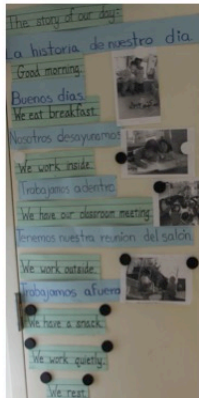 The story of our day:
La historia de nuestro día
Good morning.
Buenos días.
We eat breakfast.
Nosotros desayunamos
We work inside.
Trabajamos adentro.
We have our classroom meeting.
Tenemos nuestra reunión del salón.
We work outside.
Trabajamos afuera
We have a snack.
We work quietly.
We rest.